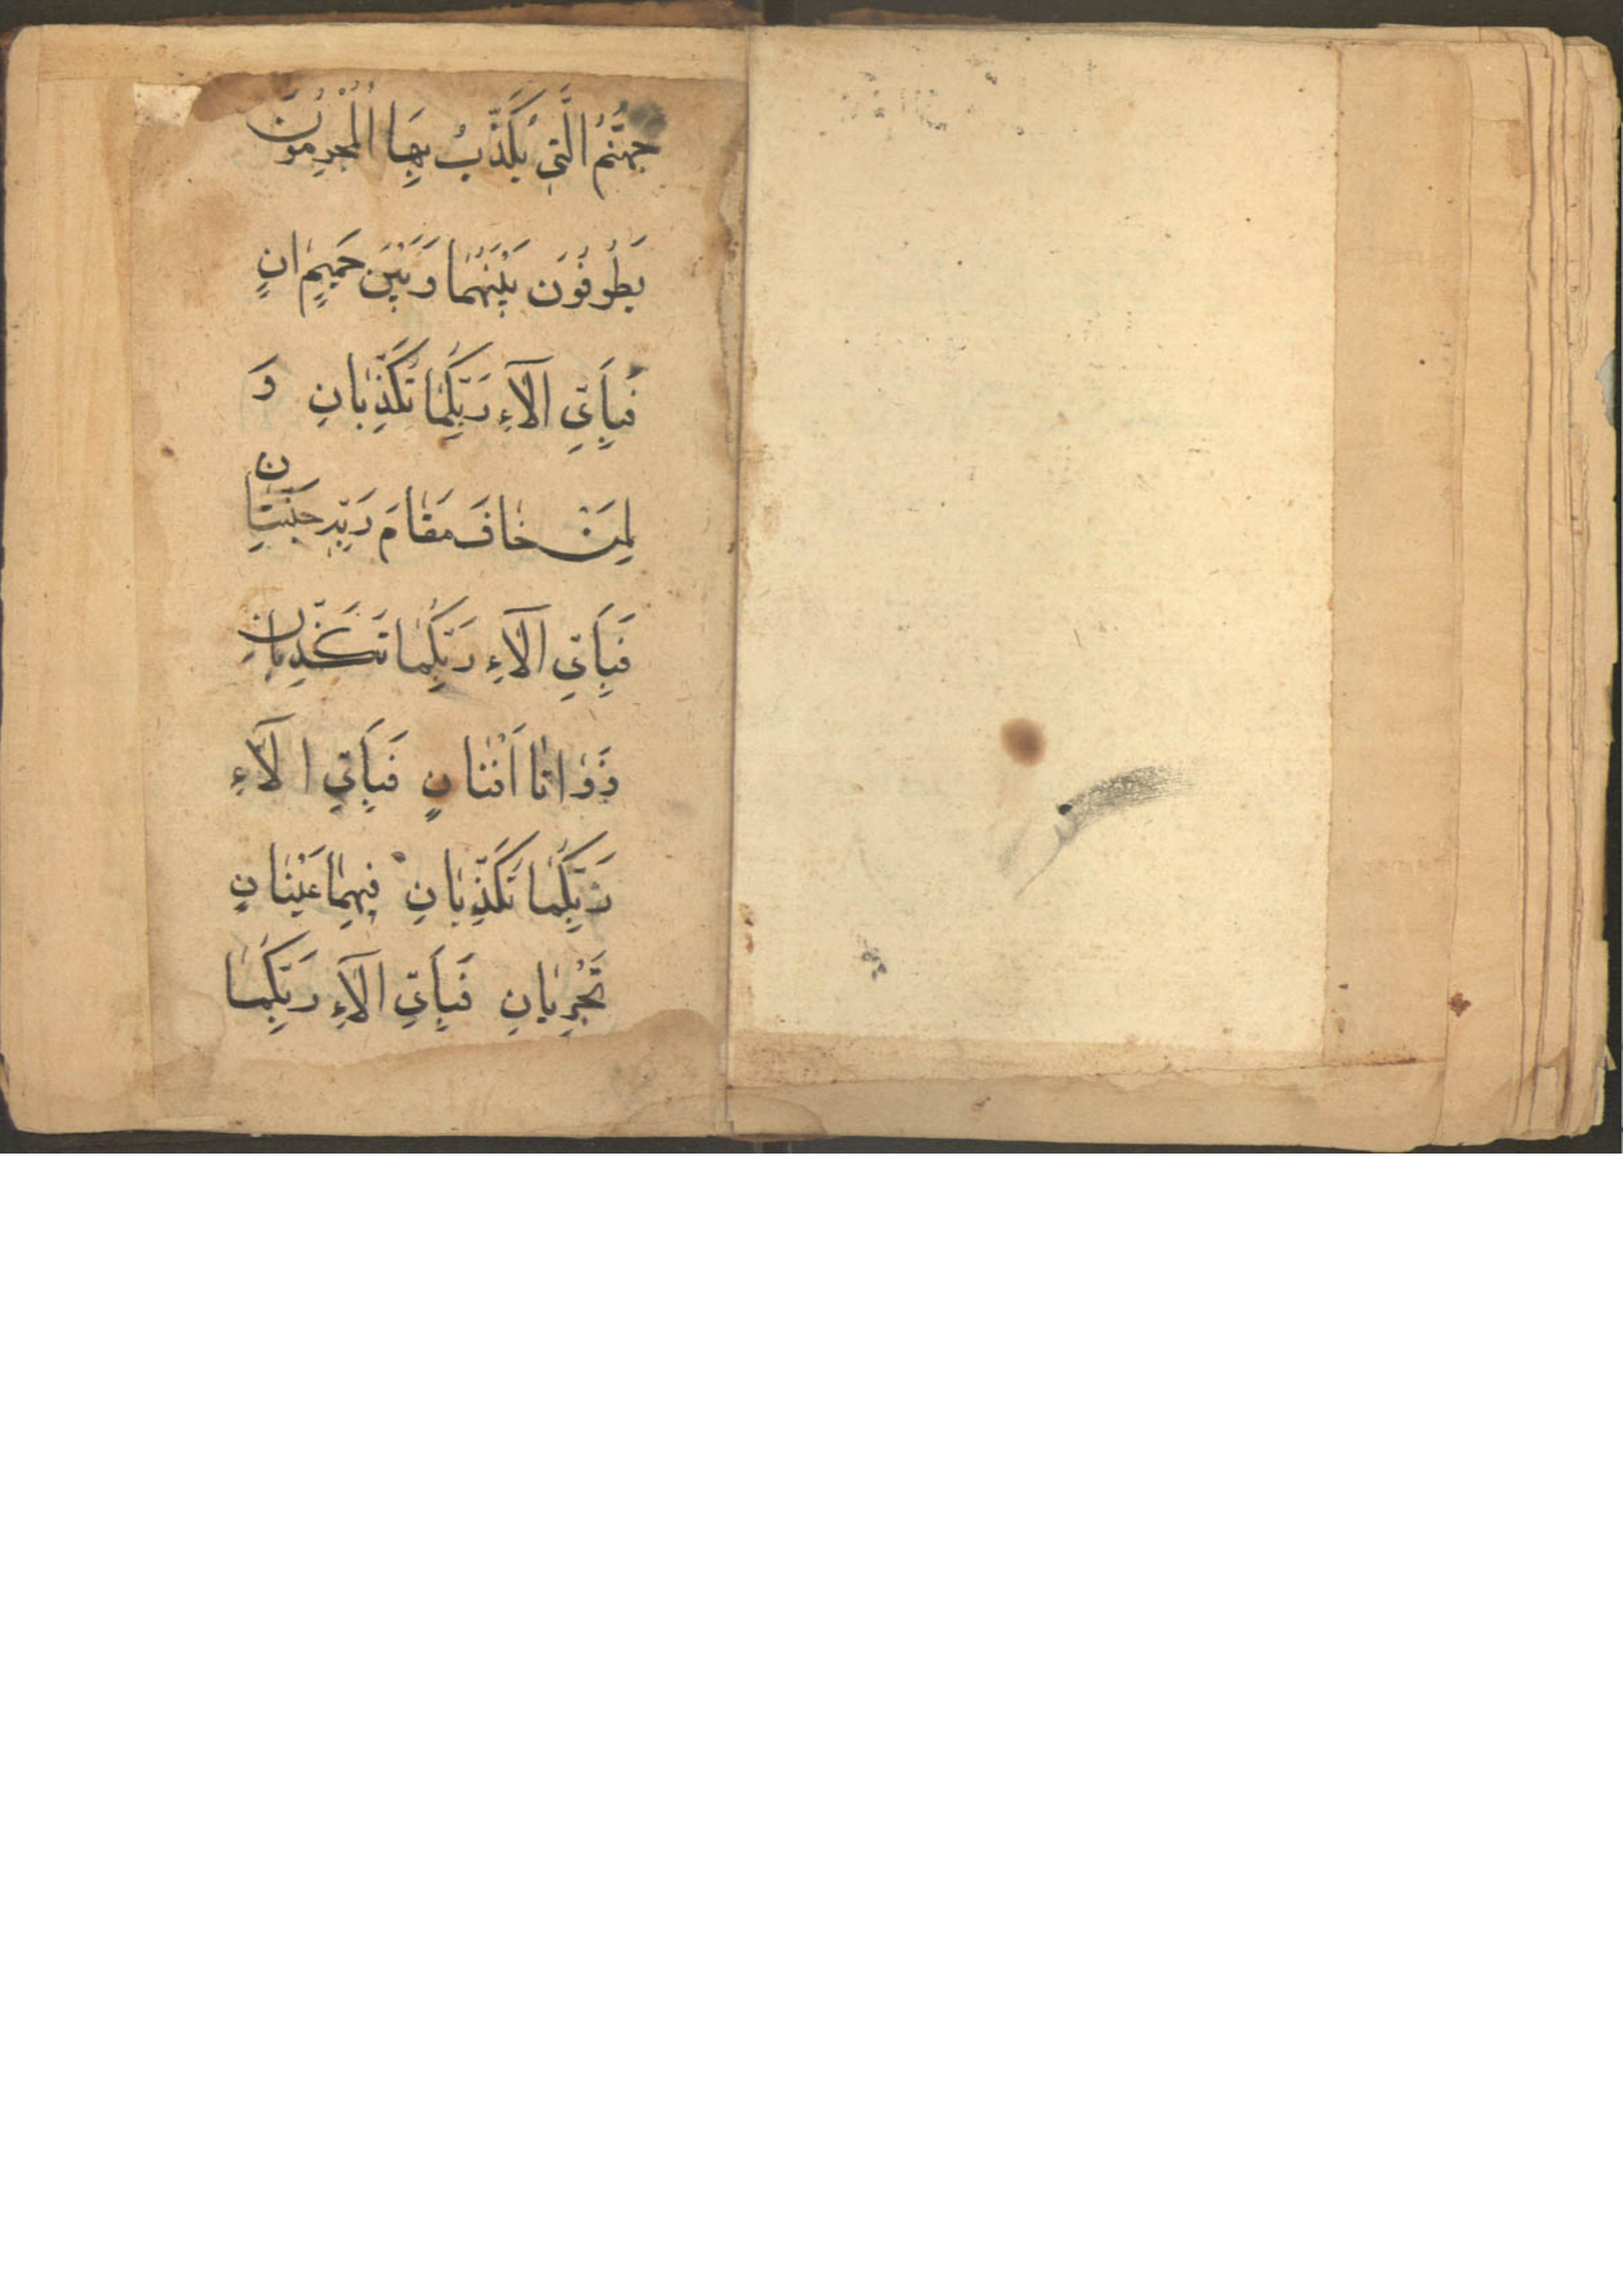 جَهَنَّمُ الَّتِي يُكَذِّبُ بِهَا الْمُجْرِمُونَ
يَطُوفُونَ بَيْنَهُمَا وَبَيْنَ حَمِيمٍ انٍ
فَبِأَيِّ آلَاءِ رَبِّكُمَا تُكَذِّبَانِ وَ
لِمَنْ خَافَ مَقَامَ رَبِّهِ جَنَّتَانِ
فَبِأَيِّ آلَاءِ رَبِّكُمَا تُكَذِّبَانِ
ذَوَاتَا اَفْنَانٍ فَبِأَيِّ آلَاءِ
رَبِّكُمَا تُكَذِّبَانِ فِيهِمَا عَيْنَانِ
تَجْرِيَانِ فَبِأَيِّ آلَاءِ رَبِّكُمَا